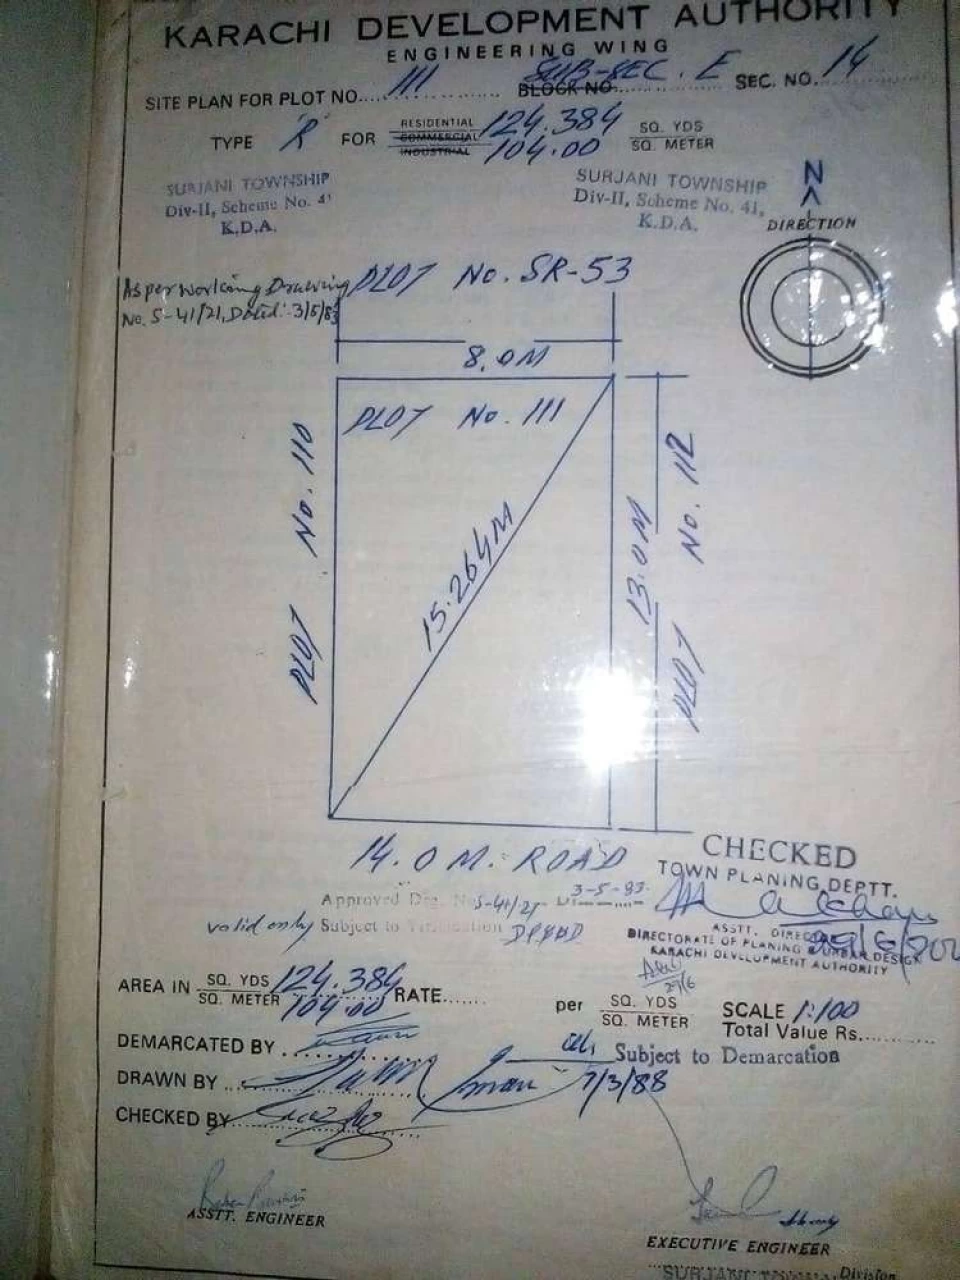 KARACHI DEVELOPMENT AUTHORITY
ENGINEERING WING
SITE PLAN FOR PLOT NO. 111 SUB-SEC. E BLOCK NO. SEC. NO. 14
TYPE 'R' FOR RESIDENTIAL COMMERCIAL INDUSTRIAL 124.384 SQ. YDS
104.00 SQ. METER
SURJANI TOWNSHIP
Div-II, Scheme No. 41
K.D.A.
SURJANI TOWNSHIP
Div-II, Scheme No. 41,
K.D.A.
N
DIRECTION
As per working Drawing
No. S-41/21, Dated: 3/5/83
PLOT No. SR-53
8.0M
PLOT No. 111
PLOT No. 110
15.264M
13.0M
PLOT No. 112
14.0 M. ROAD
CHECKED
TOWN PLANING DEPTT.
Approved Drg. No. S-41/21 Dt. 3-5-83.
valid only Subject to Verification DP&UD
ASSTT. DIRECTOR
DIRECTORATE OF PLANING & URBAN DESIGN
KARACHI DEVELOPMENT AUTHORITY
29/6
AREA IN SQ. YDS 124.384 RATE......
SQ. METER 104.00
per SQ. YDS
SQ. METER
SCALE 1:100
Total Value Rs.............
DEMARCATED BY
Subject to Demarcation
DRAWN BY
7/3/88
CHECKED BY
ASSTT. ENGINEER
EXECUTIVE ENGINEER
SURJANI TOWN Division